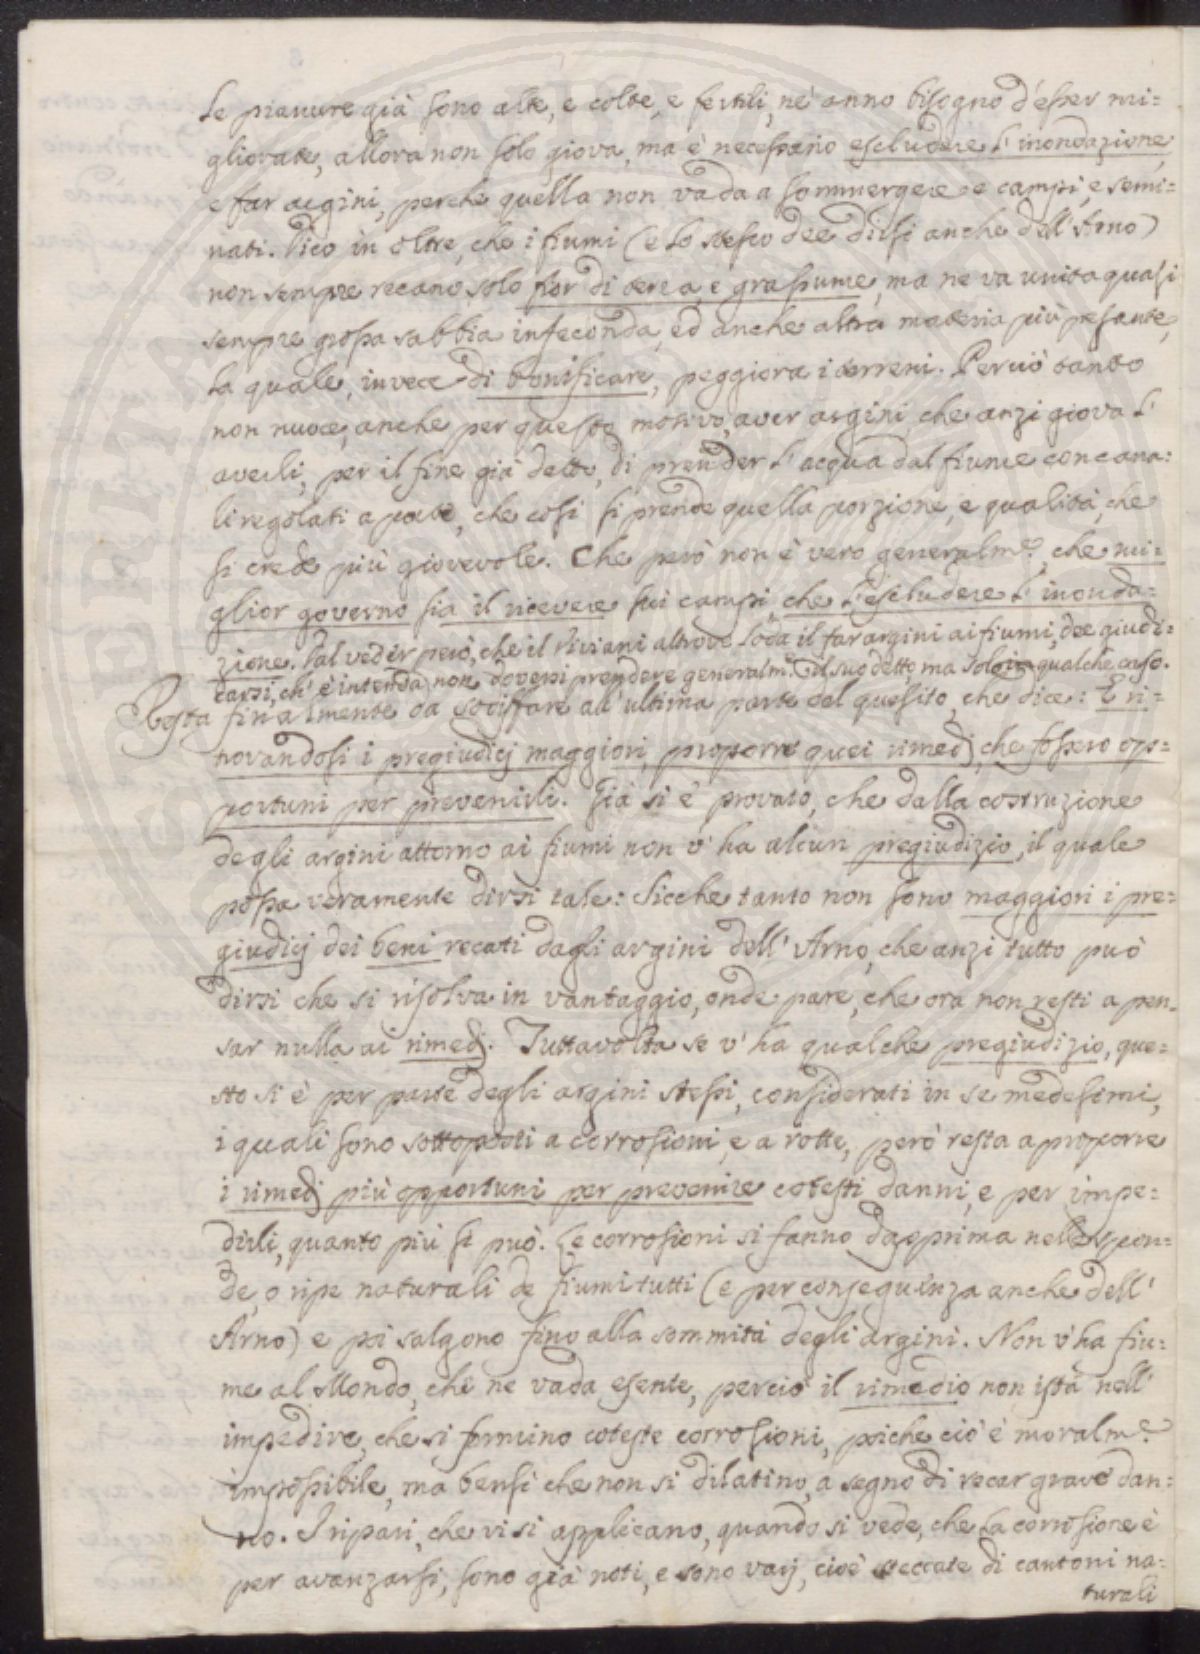 Le pianure già sono alte, e colte, e fertili, nè anno bisogno d'esser mi=
gliorate, allora non solo giova, ma è necessario escludere l'inondazione,
e far argini, perchè quella non vada a sommergere e campi, e semi=
nati. Dico in oltre, che i fiumi (e lo stesso dee dirsi anche dell'Arno)
non sempre recano solo fior di terra, e grassume, ma ne va unita quasi
sempre grossa sabbia infeconda, ed anche altra materia più pesante,
la quale, invece di bonificare, peggiora i terreni. Perciò tanto
non nuoce, anche per questo motivo, aver argini che anzi giova l'
averli, per il fine già detto, di prender l'acqua dal fiume con cana=
li regolati a porte, che così si prende quella porzione, e qualità, che
si crede più giovevole. Che però non è vero generalm.e, che mi=
glior governo sia il ricevere sui campi, che l'escludere l'inonda=
zione. Dal veder però, che il Viviani altrove loda il far argini ai fiumi, dee giudi=
carsi, ch'è intenda non doversi prendere generalm.e il suo detto, ma solo in qualche caso.
Resta finalmente da sodisfare all'ultima parte del quesito, che dice: E ri=
trovandosi i pregiudicj maggiori, proporre quei rimedj, che fossero op=
portuni per prevenirli. Già si è provato, che dalla costruzione
degli argini attorno ai fiumi non v'ha alcun pregiudizio, il quale
possa veramente dirsi tale: Sicche tanto non sono maggiori i pre=
giudicj dei beni recati dagli argini dell'Arno, che anzi tutto può
dirsi che si risolva in vantaggio, onde pare, che ora non resti a pen=
sar nulla ai rimedj. Tuttavolta se v'ha qualche pregiudizio, que=
sto si è per parte degli argini stessi, considerati in se medesimi,
i quali sono sottoposti a corrosioni, e a rotte, però resta a proporre
i rimedj più opportuni per prevenire cotesti danni, e per impe=
dirli, quanto più si può. Le corrosioni si fanno dapprima nelle spon=
de, o ripe naturali de fiumi tutti (e per conseguenza anche dell'
Arno) e poi salgono fino alla sommità degli argini. Non v'ha fiu=
me al Mondo, che ne vada esente, perciò il rimedio non istà nell'
impedire, che si formino coteste corrosioni, poichè ciò è moralm.e
impossibile, ma bensì che non si dilatino, a segno di recar grave dan=
no. I ripari, che vi si applicano, quando si vede, che la corrosione è
per avanzarsi, sono già noti, e sono varj, cioè steccate di cantoni na=
turali